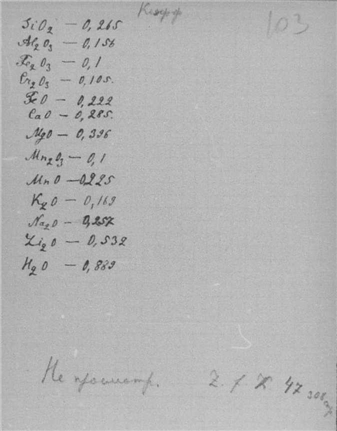 Коэфф
103
SiO₂ — 0,265
Al₂O₃ — 0,156
Fe₂O₃ — 0,1
Cr₂O₃ — 0,105.
FeO — 0,222
CaO — 0,285.
MgO — 0,396
Mn₂O₃ — 0,1
MnO — 0,225
K₂O — 0,169
Na₂O — 0,257
Li₂O — 0,532
H₂O — 0,889
Не просмотр. 47 308